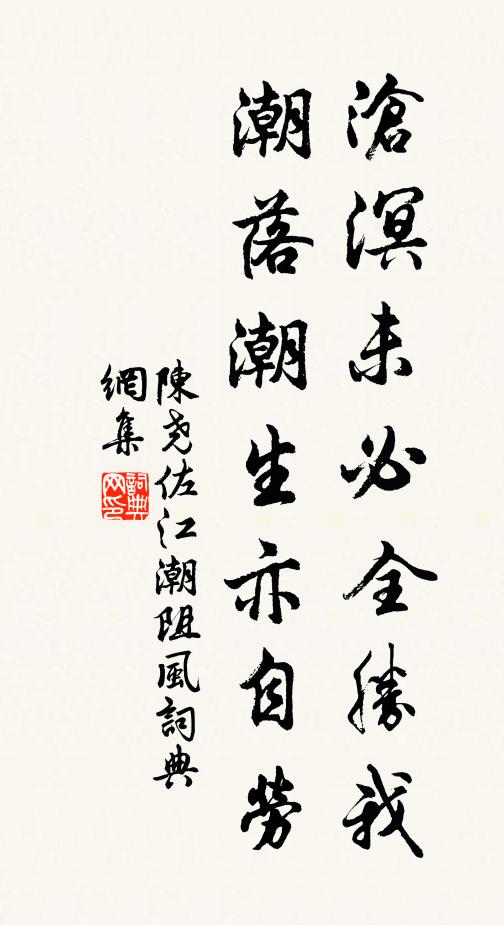 滄溟未必全勝我
潮落潮生亦自勞
陳堯佐江潮阻風詞典
網集
詞典網印